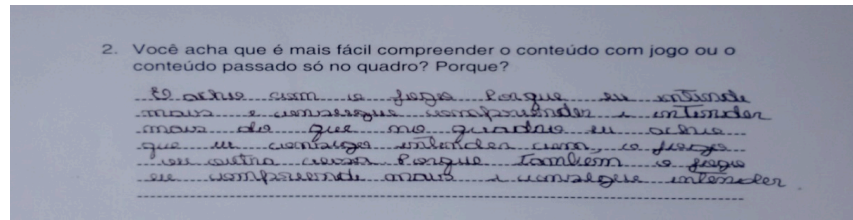 2. Você acha que é mais fácil compreender o conteúdo com jogo ou o
conteúdo passado só no quadro? Porque?
acho com o jogo Porque eu intende
mais e consegue compreender e intender
mais do que no quadro eu acho
que eu consigo intender com, o jogo
outra coisa Porque Tambem o jogo
eu compreende mais e consegue intender.